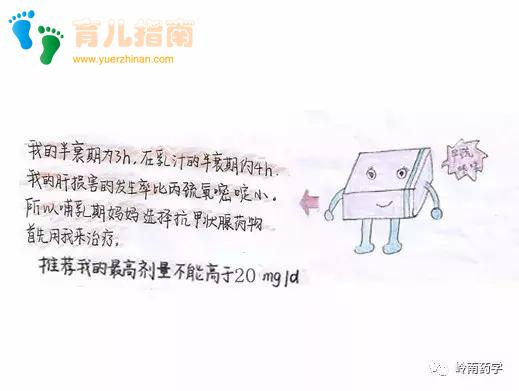 育儿指南
www.yuerzhinan.com
我的半衰期为3h，在乳汁的半衰期约4h.
我的肝损害的发生率比丙硫氧嘧啶小。
所以哺乳期妈妈选择抗甲状腺药物
首先用我来治疗。
推荐我的最高剂量不能高于20 mg/d
岭南药学